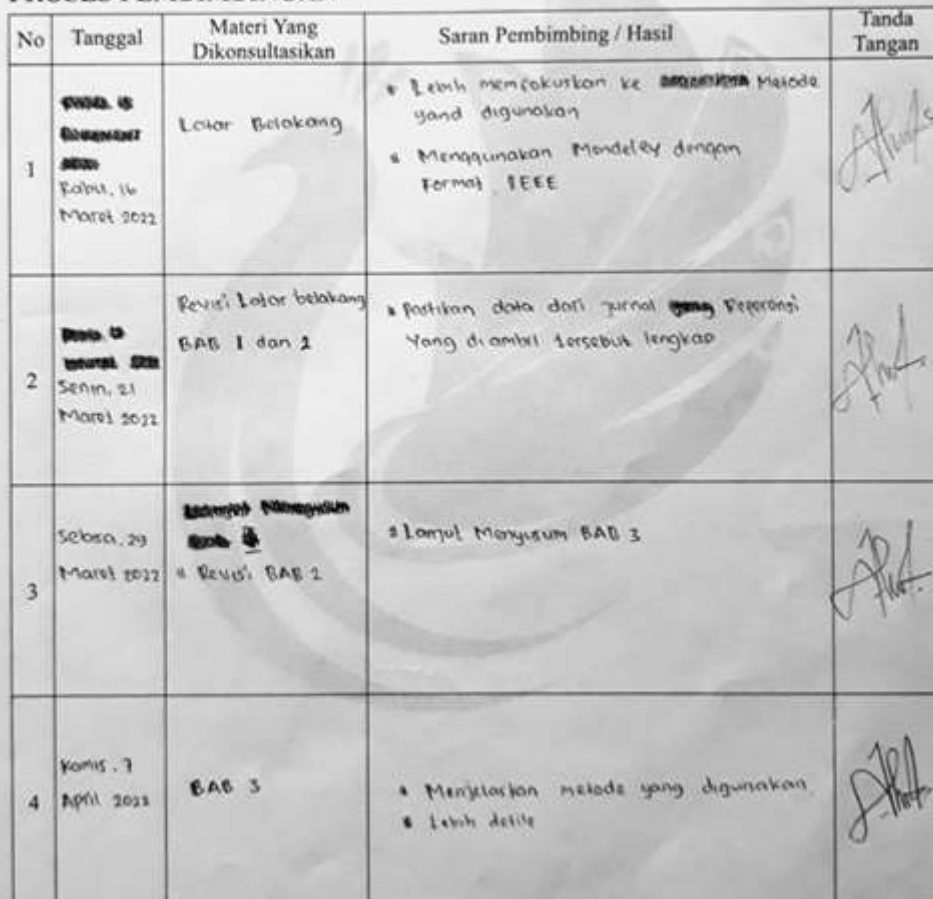 No Tanggal Materi Yang Dikonsultasikan Saran Pembimbing / Hasil Tanda Tangan
1
Rabu, 16
Maret 2022
Latar Belakang
Lebih memfokuskan ke Metode
yand digunakan
Menggunakan Mendeley dengan
Format IEEE
2
Senin, 21
Maret 2022
Revisi Latar belakang
BAB 1 dan 2
Pastikan data dari jurnal
Yang diambil tersebut lengkap
3
Selasa, 29
Maret 2022
Revisi BAB 2
Lanjut Menyusun BAB 3
4
Kamis, 7
April 2022
BAB 3
Menjelaskan metode yang digunakan
Lebih detile